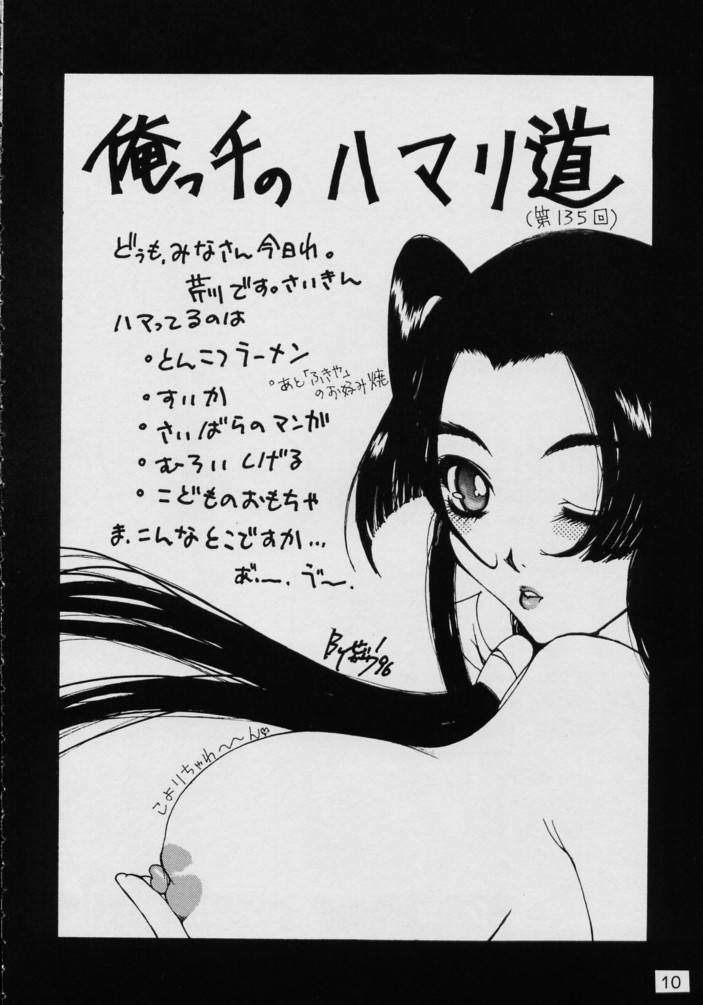 俺っ千の ハマリ道
(第135回)
どぅも、みなさん今日わ。
荒川です。さいきん
ハマってるのは
・とんこつラーメン
・あと「ふきや」
のお好み焼
・すいか
・さいばらのマンガ
・むろいしげる
・こどものおもちゃ
ま、こんなとこですか…
By '96
こよりちゃわ〜〜ん♡
10